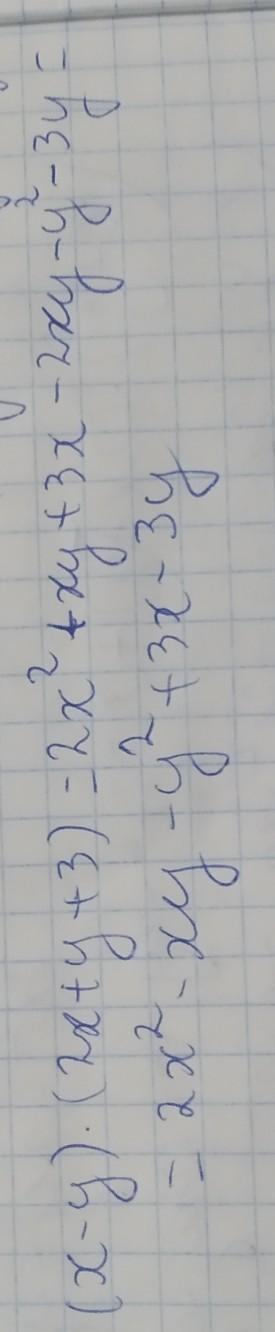 (x-y)·(2x+y+3)=2x²+xy+3x-2xy-y²-3y=
=2x²-xy-y²+3x-3y